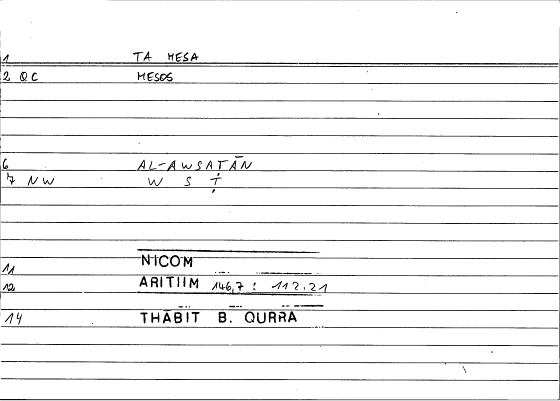 1 TA MESA
2 QC MESOS
6 AL-AWSAṬĀN
7 NW W S Ṭ
11 NICOM
12 ARITIIM 146,7 : 112.21
14 THĀBIT B. QURRA